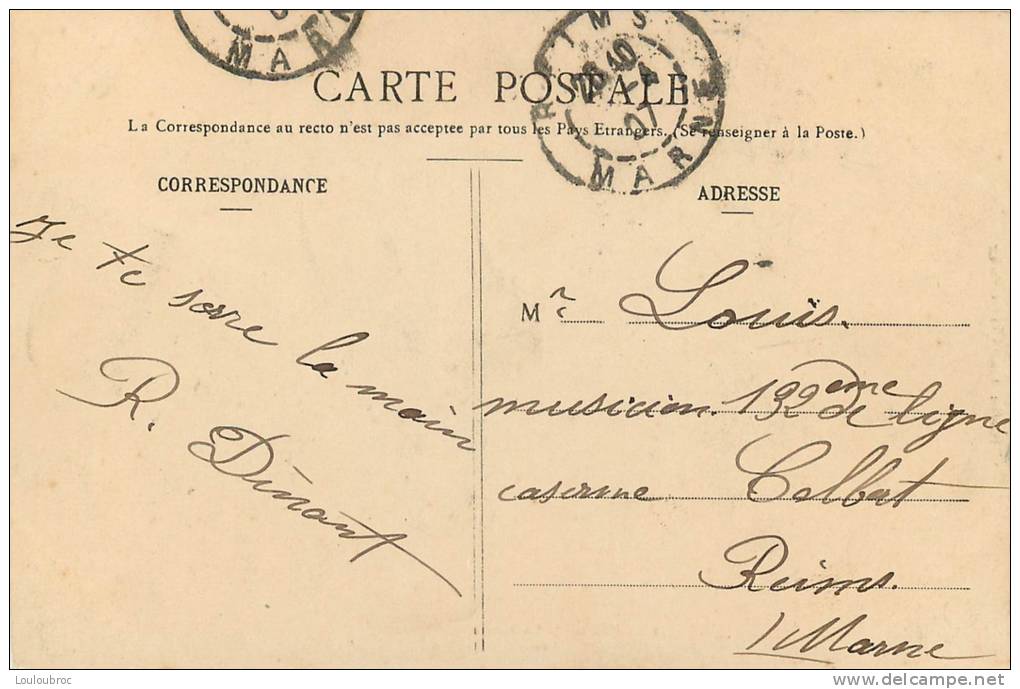 MARNE
REIMS
MARNE
CARTE POSTALE
La Correspondance au recto n'est pas acceptee par tous les Pays Etrangers. (Se renseigner à la Poste.)
CORRESPONDANCE
Je te serre la main
R. Dinant
ADRESSE
Mr Louis.
musicien 132eme de ligne
caserne Colbert
Reims.
Marne
Louloubroc
delcampe.net